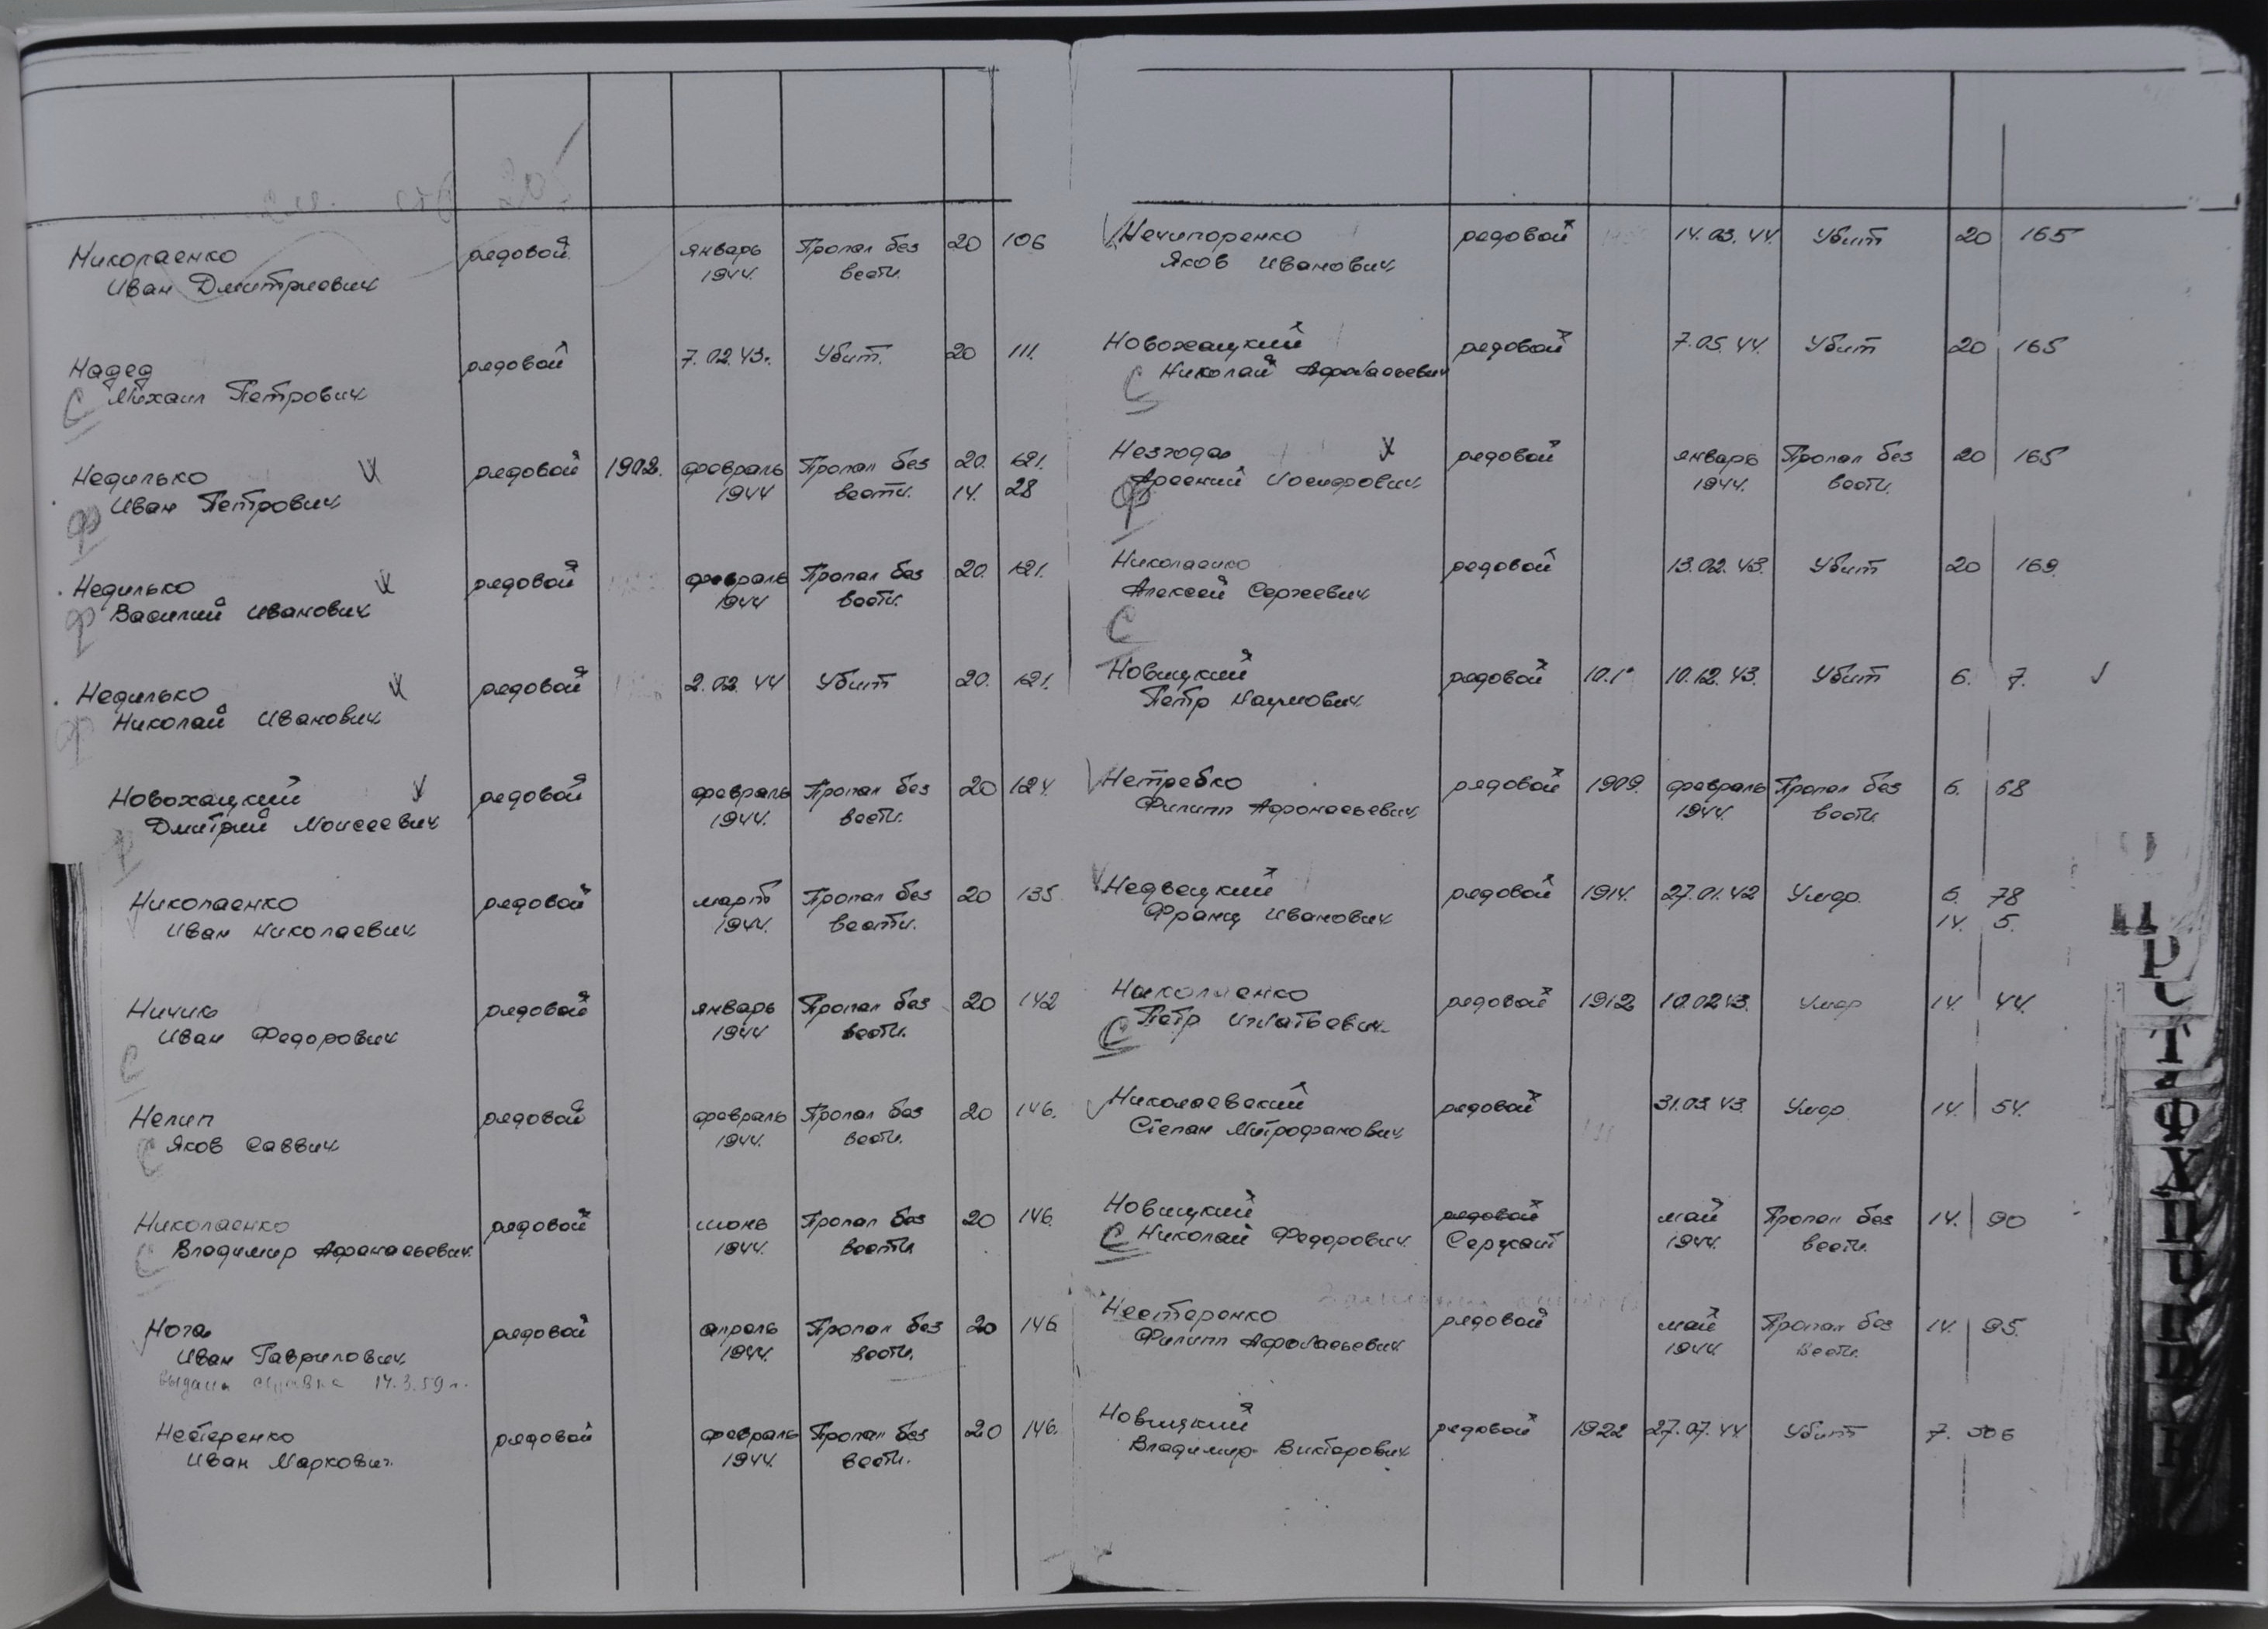 Николаенко рядовой январь Пропал без 20 106
Иван Дмитриевич 1944. вести.
Надед рядовой 7.02.43г. Убит. 20 111.
С Михаил Петрович
Недилько рядовой 1902. февраль Пропал без 20. 121.
Иван Петрович 1944 вести. 14. 28
Ф
Недилько рядовой февраль Пропал без 20. 121.
Ф Василий Иванович 1944 вести.
Недилько рядовой 2.02.44 Убит 20. 121.
Ф Николай Иванович
Новохацкий рядовой февраль Пропал без 20 124.
Дмитрий Моисеевич 1944. вести.
Ф
Николаенко рядовой март Пропал без 20 135
Иван Николаевич 1944. вести.
Ничик рядовой январь Пропал без 20 142
Иван Федорович 1944 вести.
С
Нелип рядовой февраль Пропал без 20 146.
С Яков Саввич 1944. вести.
Николаенко рядовой июнь Пропал без 20 146.
С Владимир Афанасьевич 1944. вести
Нога рядовой апрель Пропал без 20 146
Иван Гаврилович 1944. вести.
выдана справка 14.3.59г.
Нестеренко рядовой февраль Пропал без 20 146.
Иван Маркович 1944. вести.
Нечипоренко рядовой 14.03.44. Убит 20 165
Яков Иванович
Новохацкий рядовой 7.05.44. Убит 20 165
С Николай Афанасьевич
Незгода рядовой январь Пропал без 20 165
Арсений Иосифович 1944. вести.
Ф
Николаенко рядовой 13.02.43. Убит 20 169.
Алексей Сергеевич
С
Новицкий рядовой 10.12.43. Убит 6. 7.
Петр Наумович
Нетребко рядовой 1909. февраль Пропал без 6. 68
Филипп Афанасьевич 1944. вести.
Недвецкий рядовой 1914. 27.01.42 Умер. 6. 78
Франц Иванович 14. 5.
Николаенко рядовой 1912 10.02.43. Умер 14. 44.
С Петр Игнатьевич
Николаевский рядовой 31.03.43. Умер 14. 54.
Степан Митрофанович
Новицкий рядовой май Пропал без 14. 90
С Николай Федорович Сержант 1944. вести.
Нестеренко рядовой май Пропал без 14. 95.
Филипп Афанасьевич 1944 вести.
Новицкий рядовой 1922 27.07.44 Убит 7.
Владимир Викторович
Р
С
Т
Ф
Х